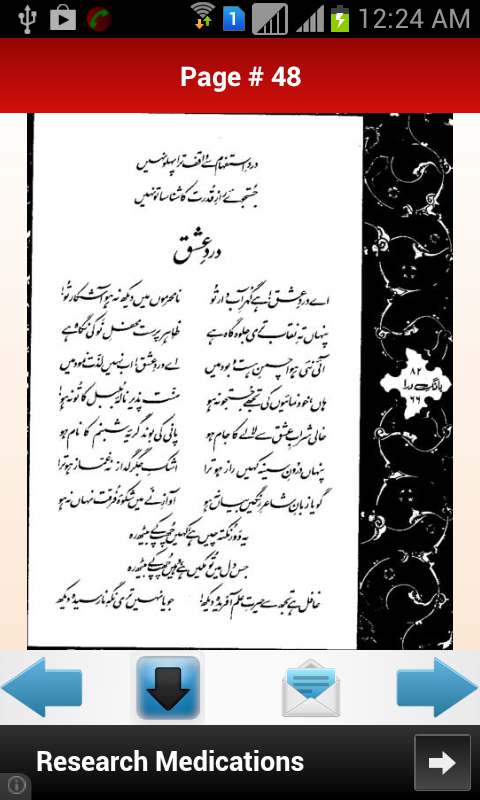 12:24 AM
Page # 48
دردِ استفہام سے واقف ترا پہلو نہیں
جستجوئے رازِ قدرت کا شناسا تو نہیں
دردِ عشق
اے دردِ عشق! ہے گہرِ آب دار تُو نامحرموں میں دیکھ نہ ہو آشکار تُو!
پنہاں تہِ نقاب تری جلوہ گاہ ہے ظاہر پرست محفلِ نَو کی نگاہ ہے
آئی نئی ہوا چمنِ ہست و بود میں اے دردِ عشق! اب نہیں لذّت نمود میں
ہاں خود نمائیوں کی تجھے جستجو نہ ہو منّت پذیر نالۂ بلبل کا تُو نہ ہو!
خالی شرابِ عشق سے لالے کا جام ہو پانی کی بوند گریۂ شبنم کا نام ہو
پنہاں درونِ سینہ کہیں راز ہو ترا اشکِ جگر گداز نہ غمّاز ہو ترا
گویا زبانِ شاعرِ رنگیں بیاں نہ ہو آوازِ نَے میں شکوۂ فرقت نہاں نہ ہو
یہ دَور نکتہ چیں ہے، کہیں چھُپ کے بیٹھ رہ
جس دل میں تُو مکیں ہے، وہیں چھُپ کے بیٹھ رہ
غافل ہے تجھ سے حیرتِ علم آفریدہ دیکھ! جویا نہیں تری نگہِ نارسیدہ دیکھ
۸۲
بانگِ درا
۶۶
Research Medications